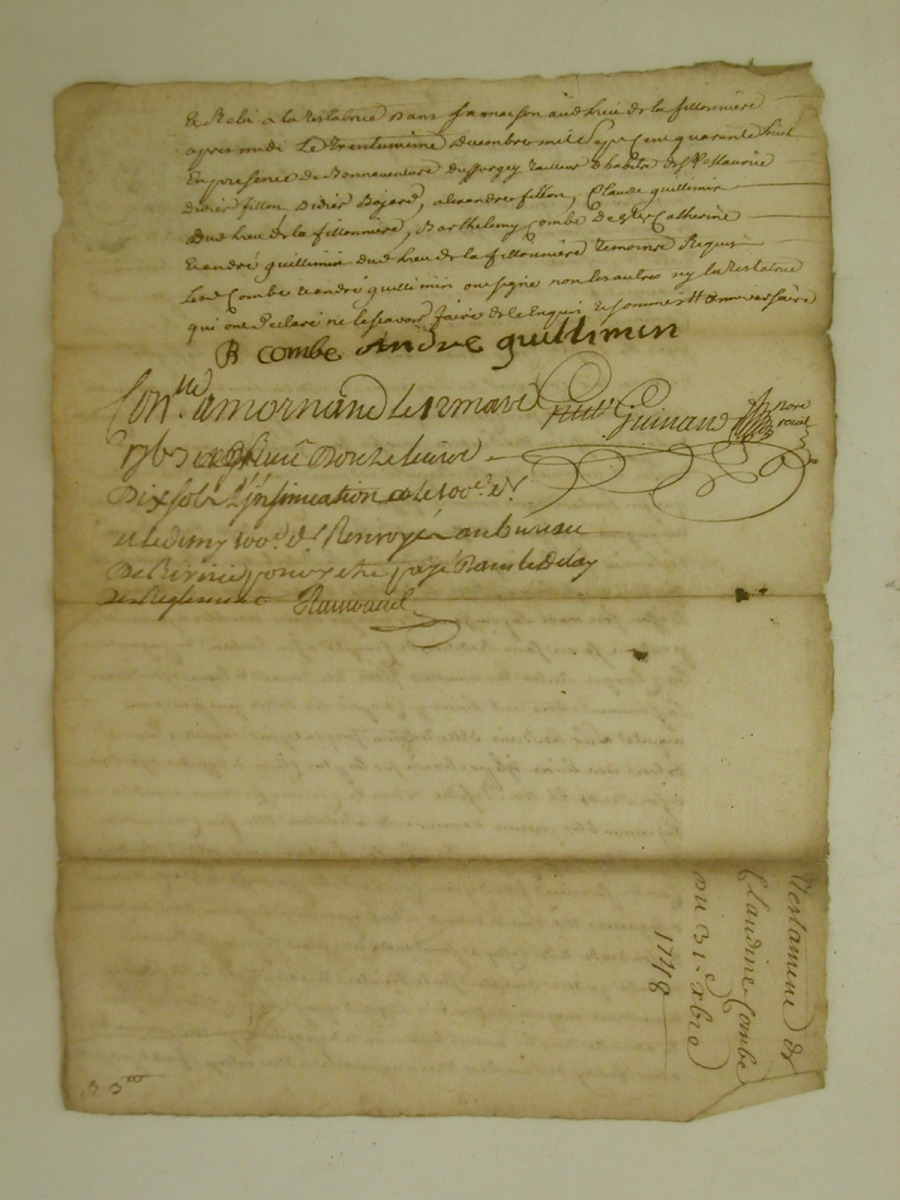 Et Relu a la testatrice dans sa maison aud. lieu de la fillonniere
apres midi Le Trentunième Decembre mil sept Cent quarante huit
En presence de Bonnaventure tailleur d'habits de St Maurice
didier fillon didier Bojard, alexandre fillon, Claude guillimin
Dud. Lieu de la fillonniere, Barthelemy Combe de Ste Catherine
Et andré guillimin dud. Lieu de la fillonniere Temoins Requis
Led. Combe et andré guillimin ont signé non les autres ny la testatrice
qui ont declaré ne le scavoir faire de ce Enquis et sommés
B combe andre guillimin
Con.lle a mornand Le 12 mars Guinand
no.re roial
douze livres
dix sols L'insinuation et le 100.e d.r
et le demy 100.e d.r Renvoyé au bureau
De pour y etre payé dans le delay
de Reglement
Testament de
Claudine Combe
du 31.e xbre
1748